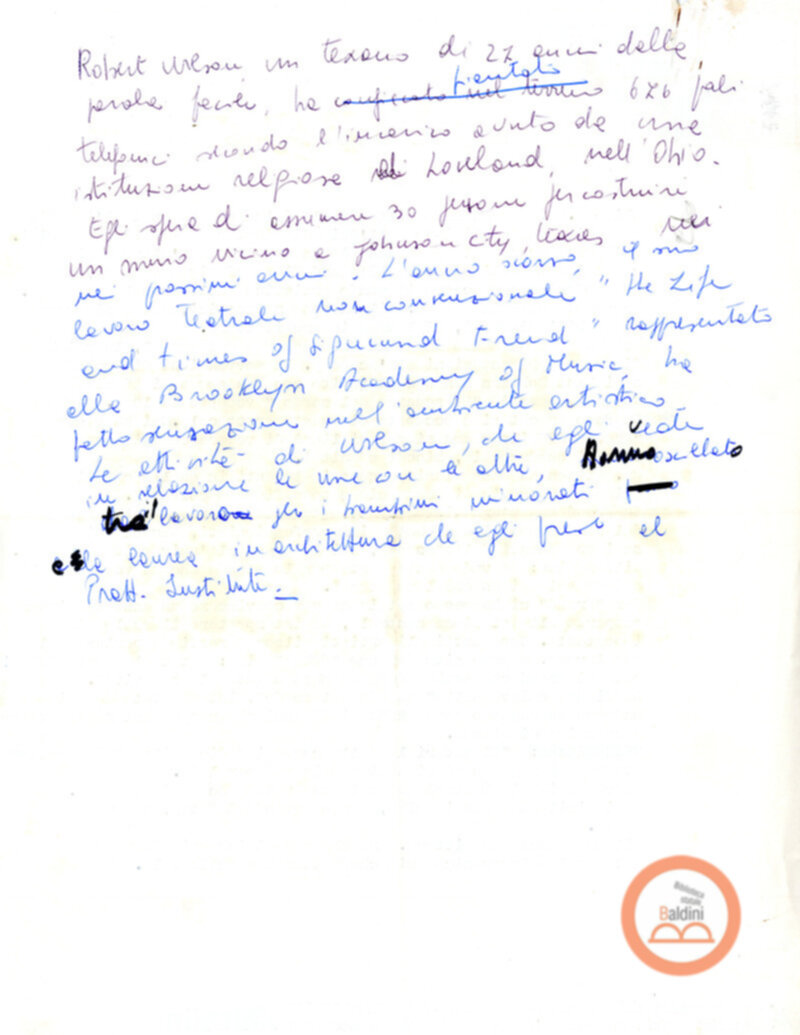 Robert Wilson un texano di 27 anni dalla
piantato
parola facile, ha conficcato nel terreno 676 pali
telefonici secondo l'incarico avuto da una
istituzione religiosa di Loveland, nell'Ohio.
Egli spera di assumere 30 persone per costruire
un muro vicino a Johnson City, Texas nei
nei prossimi anni. L'anno scorso, il suo
lavoro teatrale non convenzionale "The Life
and times of Sigmund Freud" rappresentato
alla Brooklyn Academy of Music, ha
fatto sensazione nell'ambiente artistico
Le attività di Wilson, che egli vede
in relazione le une con le altre, hanno oscillato
tra il lavoro per i bambini minorati
e la laurea in architettura che egli prese al
Pratt. Institute.
Biblioteca
statale
Baldini